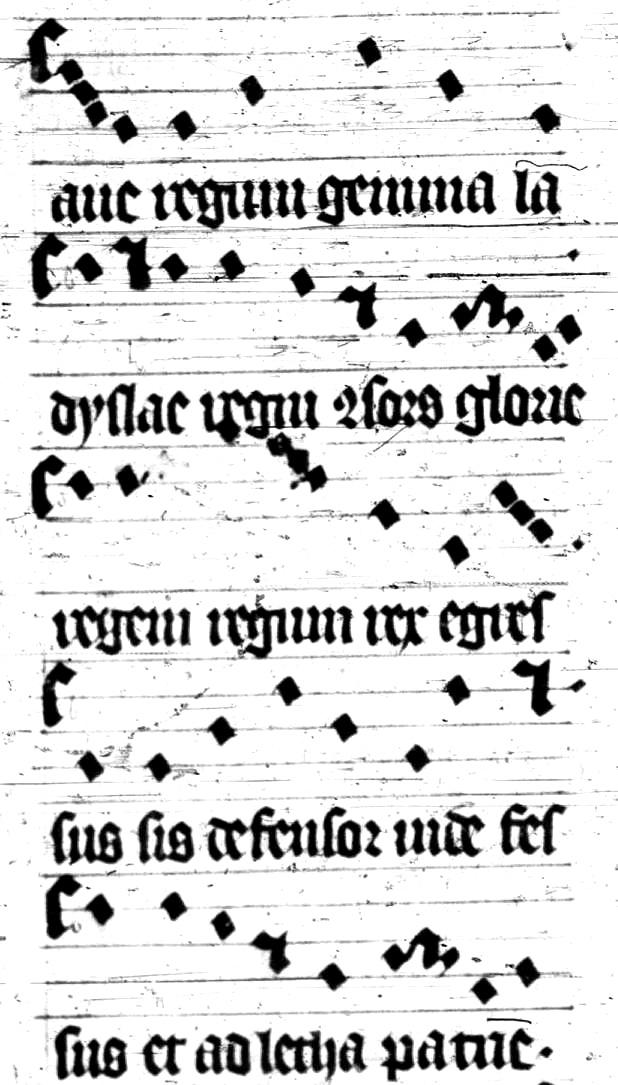 aue regum gemma la
dyslae regni ꝯsors glorie
regem regnum rex egres
sus sis defensor inde fes
sus et ad letha patrie.